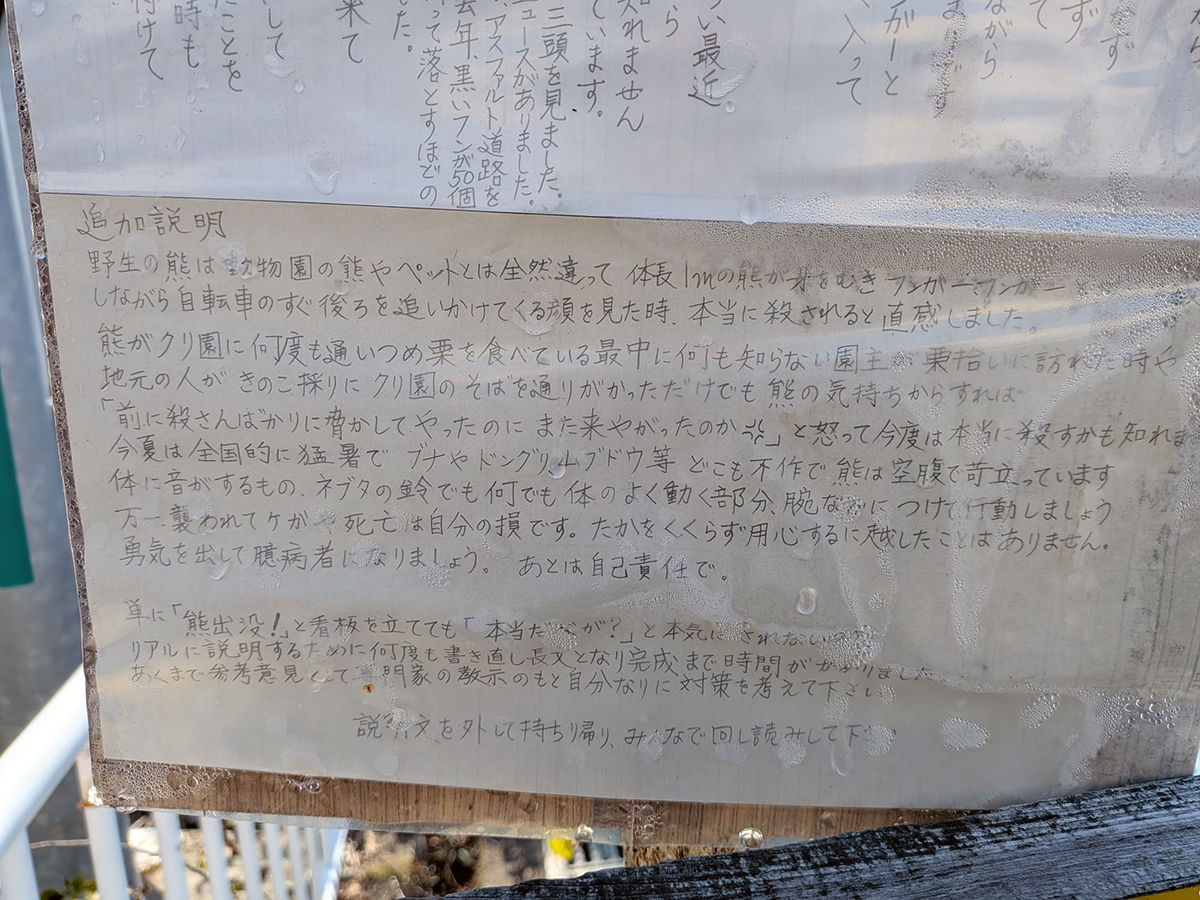 なず
ず
て
ながら
ガーと
入って
い最近
ら
知れません
ています。
三頭を見ました。
ュースがありました。
アスファルト道路を
去年、黒いフンが50個
って落とすほどの
した。
来て
して
たことを
時も
付けて
追加説明
野生の熊は動物園の熊やペットとは全然違って 体長1mの熊が牙をむきフンガーフンガーと
しながら自転車のすぐ後ろを追いかけてくる顔を見た時、本当に殺されると直感しました。
熊がクリ園に何度も通いつめ栗を食べている最中に何も知らない園主が栗拾いに訪れた時や
地元の人がきのこ採りにクリ園のそばを通りがかっただけでも熊の気持ちからすれば
「前に殺さんばかりに脅かしてやったのにまた来やがったのか💢」と怒って今度は本当に殺すかも知れま
今夏は全国的に猛暑でブナやドングリ、ムブドウ等どこも不作で熊は空腹で苛立っています
体に音がするもの、ネブタの鈴でも何でも体のよく動く部分、腕などにつけて行動しましょう
万一、襲われてケガや死亡は自分の損です。たかをくくらず用心するに越したことはありません。
勇気を出して臆病者になりましょう。 あとは自己責任で。
単に「熊出没!」と看板を立てても「本当だべが?」と本気にされない
リアルに説明するために何度も書き直し長文となり完成まで時間がかかりました
あくまで参考意見として専門家の教示のもと自分なりに対策を考えて下さい
説明文を外して持ち帰り、みんなで回し読みして下